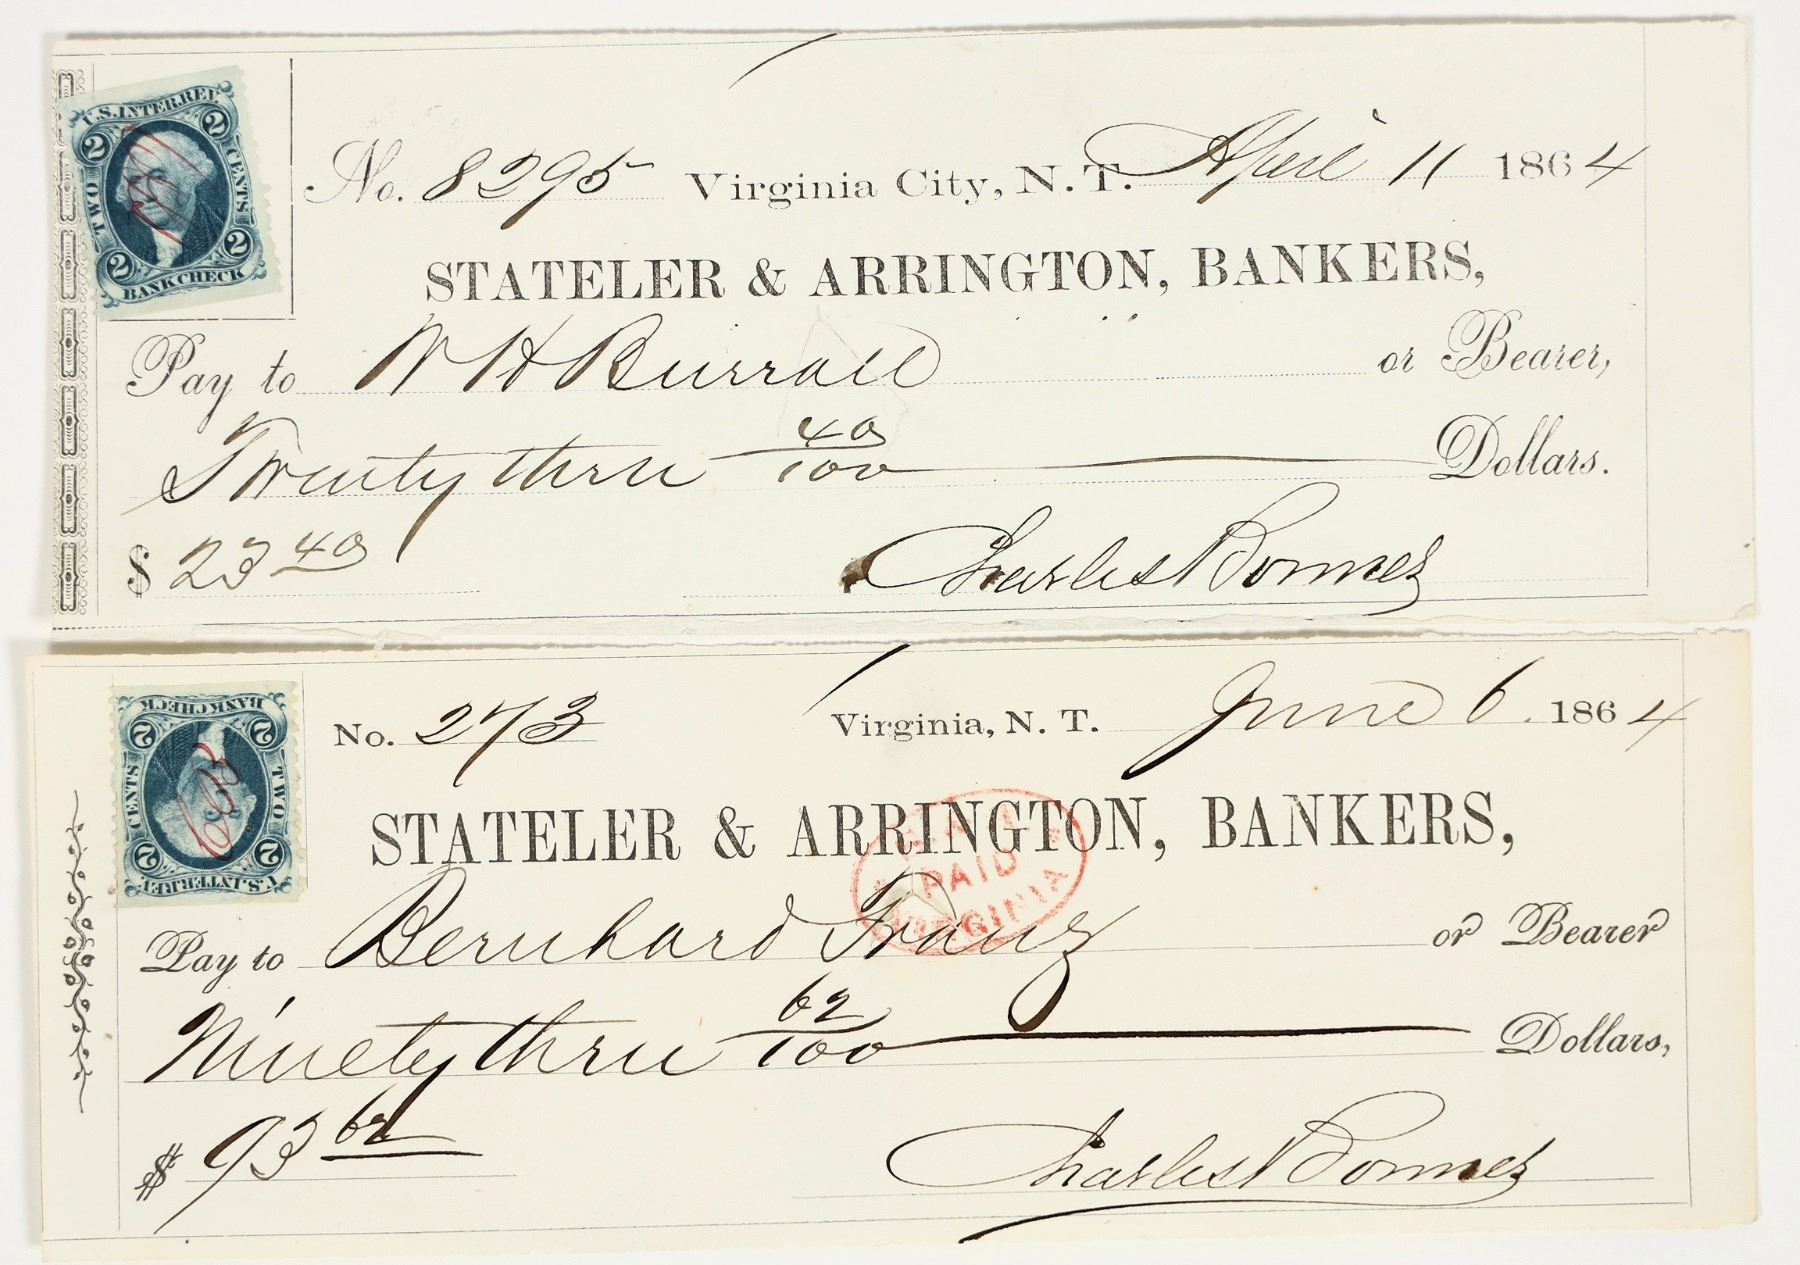 U.S. INTER. REV.
2 2
TWO CENTS
2 2
BANK CHECK
No. 8295 Virginia City, N. T. April 11 1864
STATELER & ARRINGTON, BANKERS,
Pay to W H Burrall or Bearer,
Twenty three 40/100 Dollars.
$ 23 40
Charles Bonner
BANK CHECK
2 2
CENTS TWO
2 2
U.S. INTER. REV.
No. 273 Virginia, N. T. June 6. 1864
STATELER & ARRINGTON, BANKERS,
PAID
VIRGINIA
Pay to Bernhard Franz or Bearer
Ninety three 62/100 Dollars,
$ 93 62
Charles Bonner